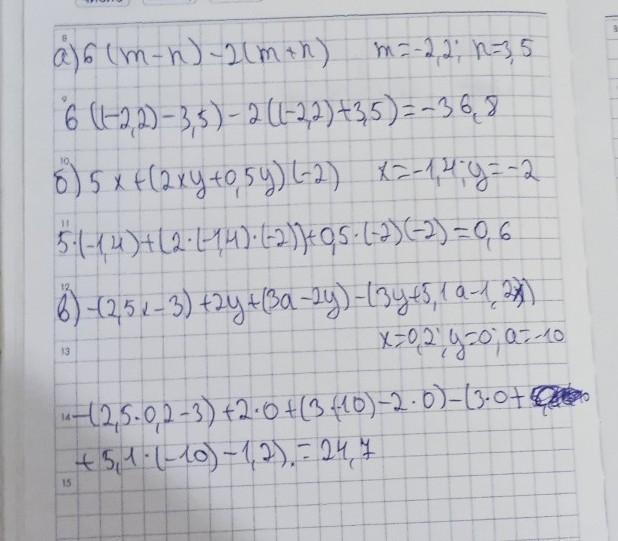 а) 6(m-n)-2(m+n) m=-2,2; n=3,5
6((-2,2)-3,5)-2((-2,2)+3,5)=-36,8
10
б) 5x+(2xy+0,5y)(-2) x=-1,4; y=-2
11
5·(-1,4)+(2·(-1,4)·(-2))+0,5·(-2)(-2)=0,6
12
в) -(2,5x-3)+2y+(3a-2y)-(3y+5,1a-1,2)
x=0,2; y=0; a=-10
13
14
-(2,5·0,2-3)+2·0+(3(-10)-2·0)-(3·0+
+5,1·(-10)-1,2).=24,7
15